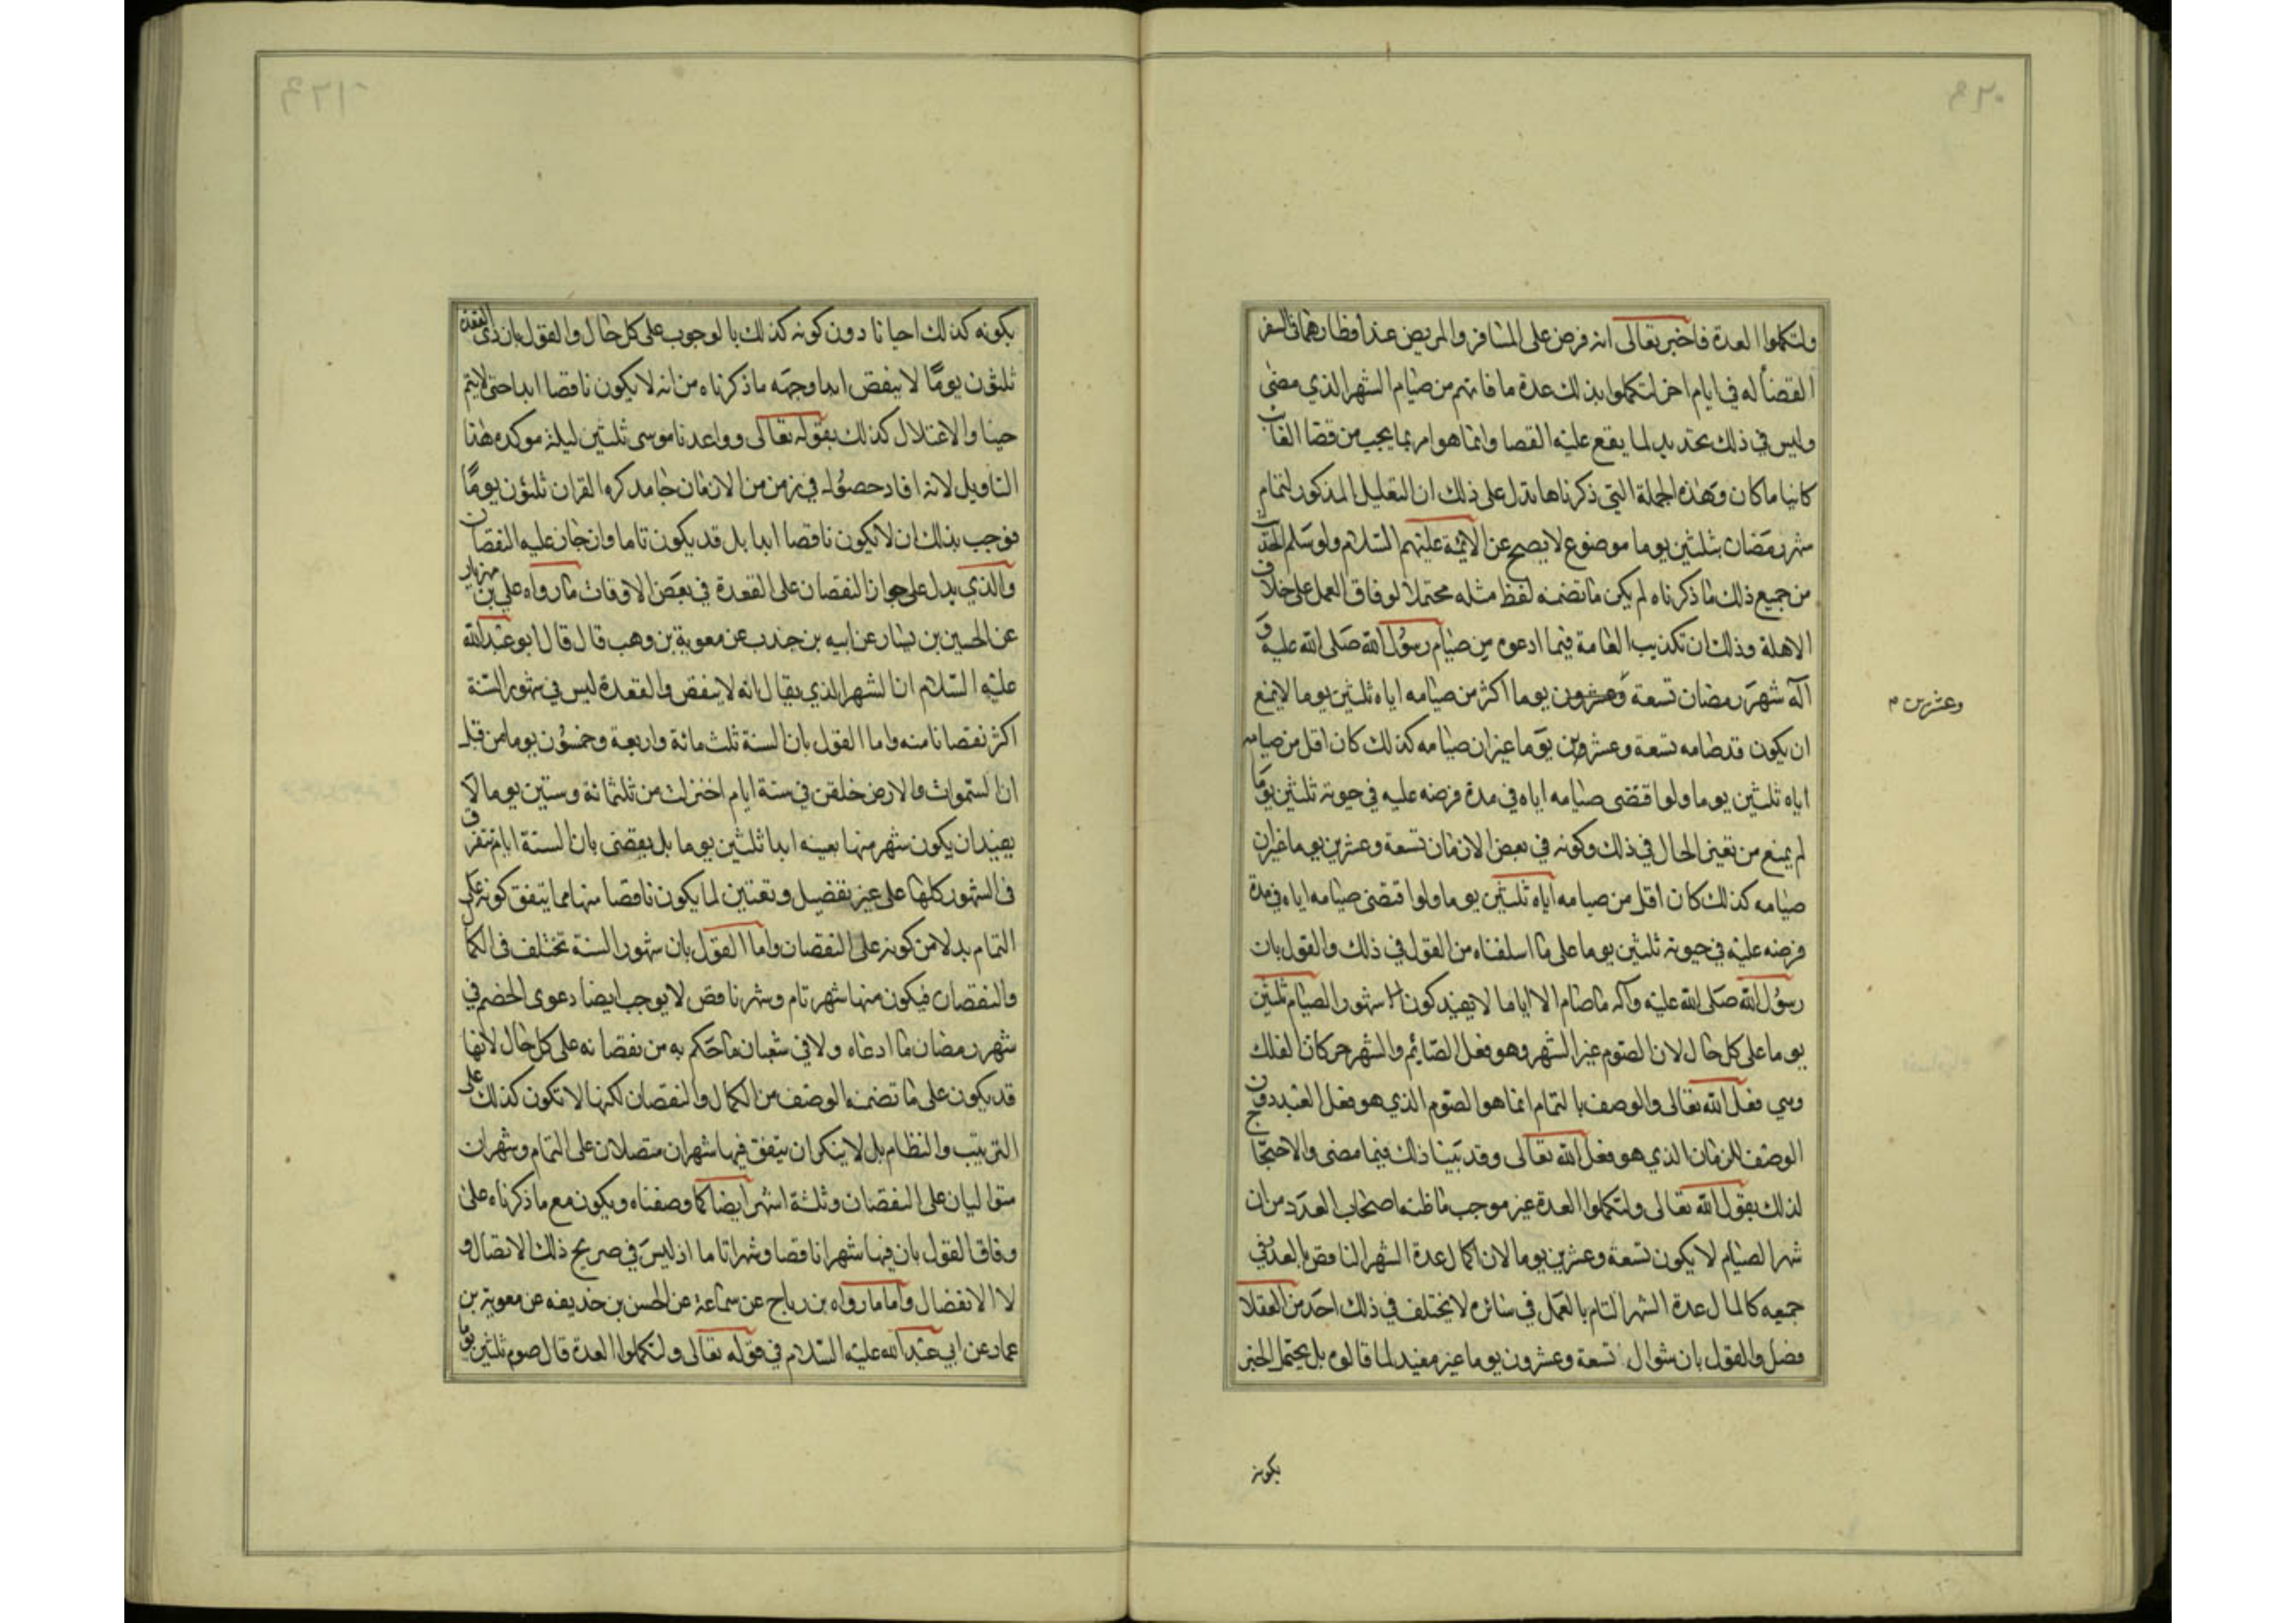 ولتكملوا العدة فاخبر تعالى انه فرض على المسافر والمريض عند افطارهما في السفر
القضاء له في ايام اخر لتكملوا بذلك عدة ما فاتهم من صيام الشهر الذي مضى
وليس في ذلك تحديد لما يقع عليه القضا وانما هو امر بما يجب من قضا الفائت
كائنا ما كان وهذه الجملة التي ذكرناها تدل على ذلك ان التعليل المذكور لتمام
شهر رمضان بثلثين يوما موضوع لا يصح عن الائمة عليهم السلام ولو سلم الحديث
من جميع ذلك ما ذكرناه لم يكن ما تضمنه لفظ مثله محتملا لوفاق العمل على خلاف
الاهلة وذلك ان تكذيب العامة فيما ادعوه من صيام رسول الله صلى الله عليه و
آله شهر رمضان تسعة وعشرون يوما اكثر من صيامه اياه ثلثين يوما لا يمنع
وعشرين م
ان يكون قد صامه تسعة وعشرين يوما غير ان صيامه كذلك كان اقل من صيامه
اياه ثلثين يوما ولو اقتضى صيامه اياه في مدة فرضه عليه في حيوته ثلثين يوما
لم يمنع من تغير الحال في ذلك وكونه في بعض الازمان تسعة وعشرين يوما غير ان
صيامه كذلك كان اقل من صيامه اياه ثلثين يوما ولو اقتضى صيامه اياه في مدة
فرضه عليه في حيوته ثلثين يوما على ما اسلفناه من القول في ذلك والقول بان
رسول الله صلى الله عليه وآله ما صام الا اياما لا يفيد كون شهور الصيام ثلثين
يوما على كل حال لان الصوم غير الشهر وهو فعل الصائم والشهر حركات الفلك
وهي فعل الله تعالى والوصف بالتمام انما هو الصوم الذي هو فعل العبد دون
الوصف للزمان الذي هو فعل الله تعالى وقد بينا ذلك فيما مضى والاحتجاج
لذلك بقول الله تعالى ولتكملوا العدة غير موجب ما ظنه اصحاب العدد من ان
شهر الصيام لا يكون تسعة وعشرين يوما لان اكمال عدة الشهر الناقص بالعدد في
جميعه كاكمال عدة الشهر التام بالعمل في سائره لا يختلف في ذلك احد من العقلا
فصل والقول بان شوال تسعة وعشرون يوما غير مفيد لما قالوه بل يحتمل الخبر
بكونه
بكونه كذلك احيانا دون كونه كذلك بالوجوب على كل حال والقول بان ذي القعدة
ثلثون يوما لا ينقص ابدا وجهه ما ذكرناه من انه لا يكون ناقصا ابدا حتى لا يتم
حينا والاعتلال كذلك بقوله تعالى وواعدنا موسى ثلثين ليلة موكده هذا
التاويل لانه افاد حصوله في زمن من الازمان جا مذكره القران ثلثون يوما
فوجب بذلك ان لا يكون ناقصا ابدا بل قد يكون تاما وان جاز عليه النقصان
والذي يدل على جواز النقصان على القعدة في بعض الاوقات ما رواه علي بن مهزيار
عن الحسين بن بشار عن ابيه بن جندب عن معوية بن وهب قال قال ابو عبد الله
عليه السلام ان الشهر الذي يقال انه لا ينقص والقعدة ليس في شهور السنة
اكثر نقصانا منه واما القول بان السنة ثلث مائة واربعة وخمسون يوما من قبل
ان السموات والارض خلقن في ستة ايام اختزلت من ثلثمائة وستين يوما لا
يفيد ان يكون شهر منها بعينه ابدا ثلثين يوما بل يقضى بان الستة ايام تتفرق
في الشهور كلها على غير تفضيل وتعيين لما يكون ناقصا منها مما يتفق كونه على
التمام بدلا من كونه على النقصان واما القول بان شهور السنة تختلف في الكمال
والنقصان فيكون منها شهر تام وشهر ناقص لا يوجب ايضا دعوى الخصم في
شهر رمضان ما ادعاه ولا في شعبان ما حكم به من نقصانه على كل حال لانها
قد يكون على ما تضمنه الوصف من الكمال والنقصان لكنها لا تكون كذلك على
الترتيب والنظام بل لا ينكر ان يتفق فيها شهران متصلان على التمام وشهران
متواليان على النقصان وثلثة اشهر ايضا كما وصفناه ويكون مع ما ذكرناه على
وفاق القول بان فيها شهرا ناقصا وشهرا تاما اذ ليس في صريح ذلك الاتصال و
لا الانفصال واما ما رواه بن رباح عن سماعة عن الحسن بن حذيفه عن معوية بن
عمار عن ابي عبد الله عليه السلام في قوله تعالى ولتكملوا العدة قال صوم ثلثين يوما